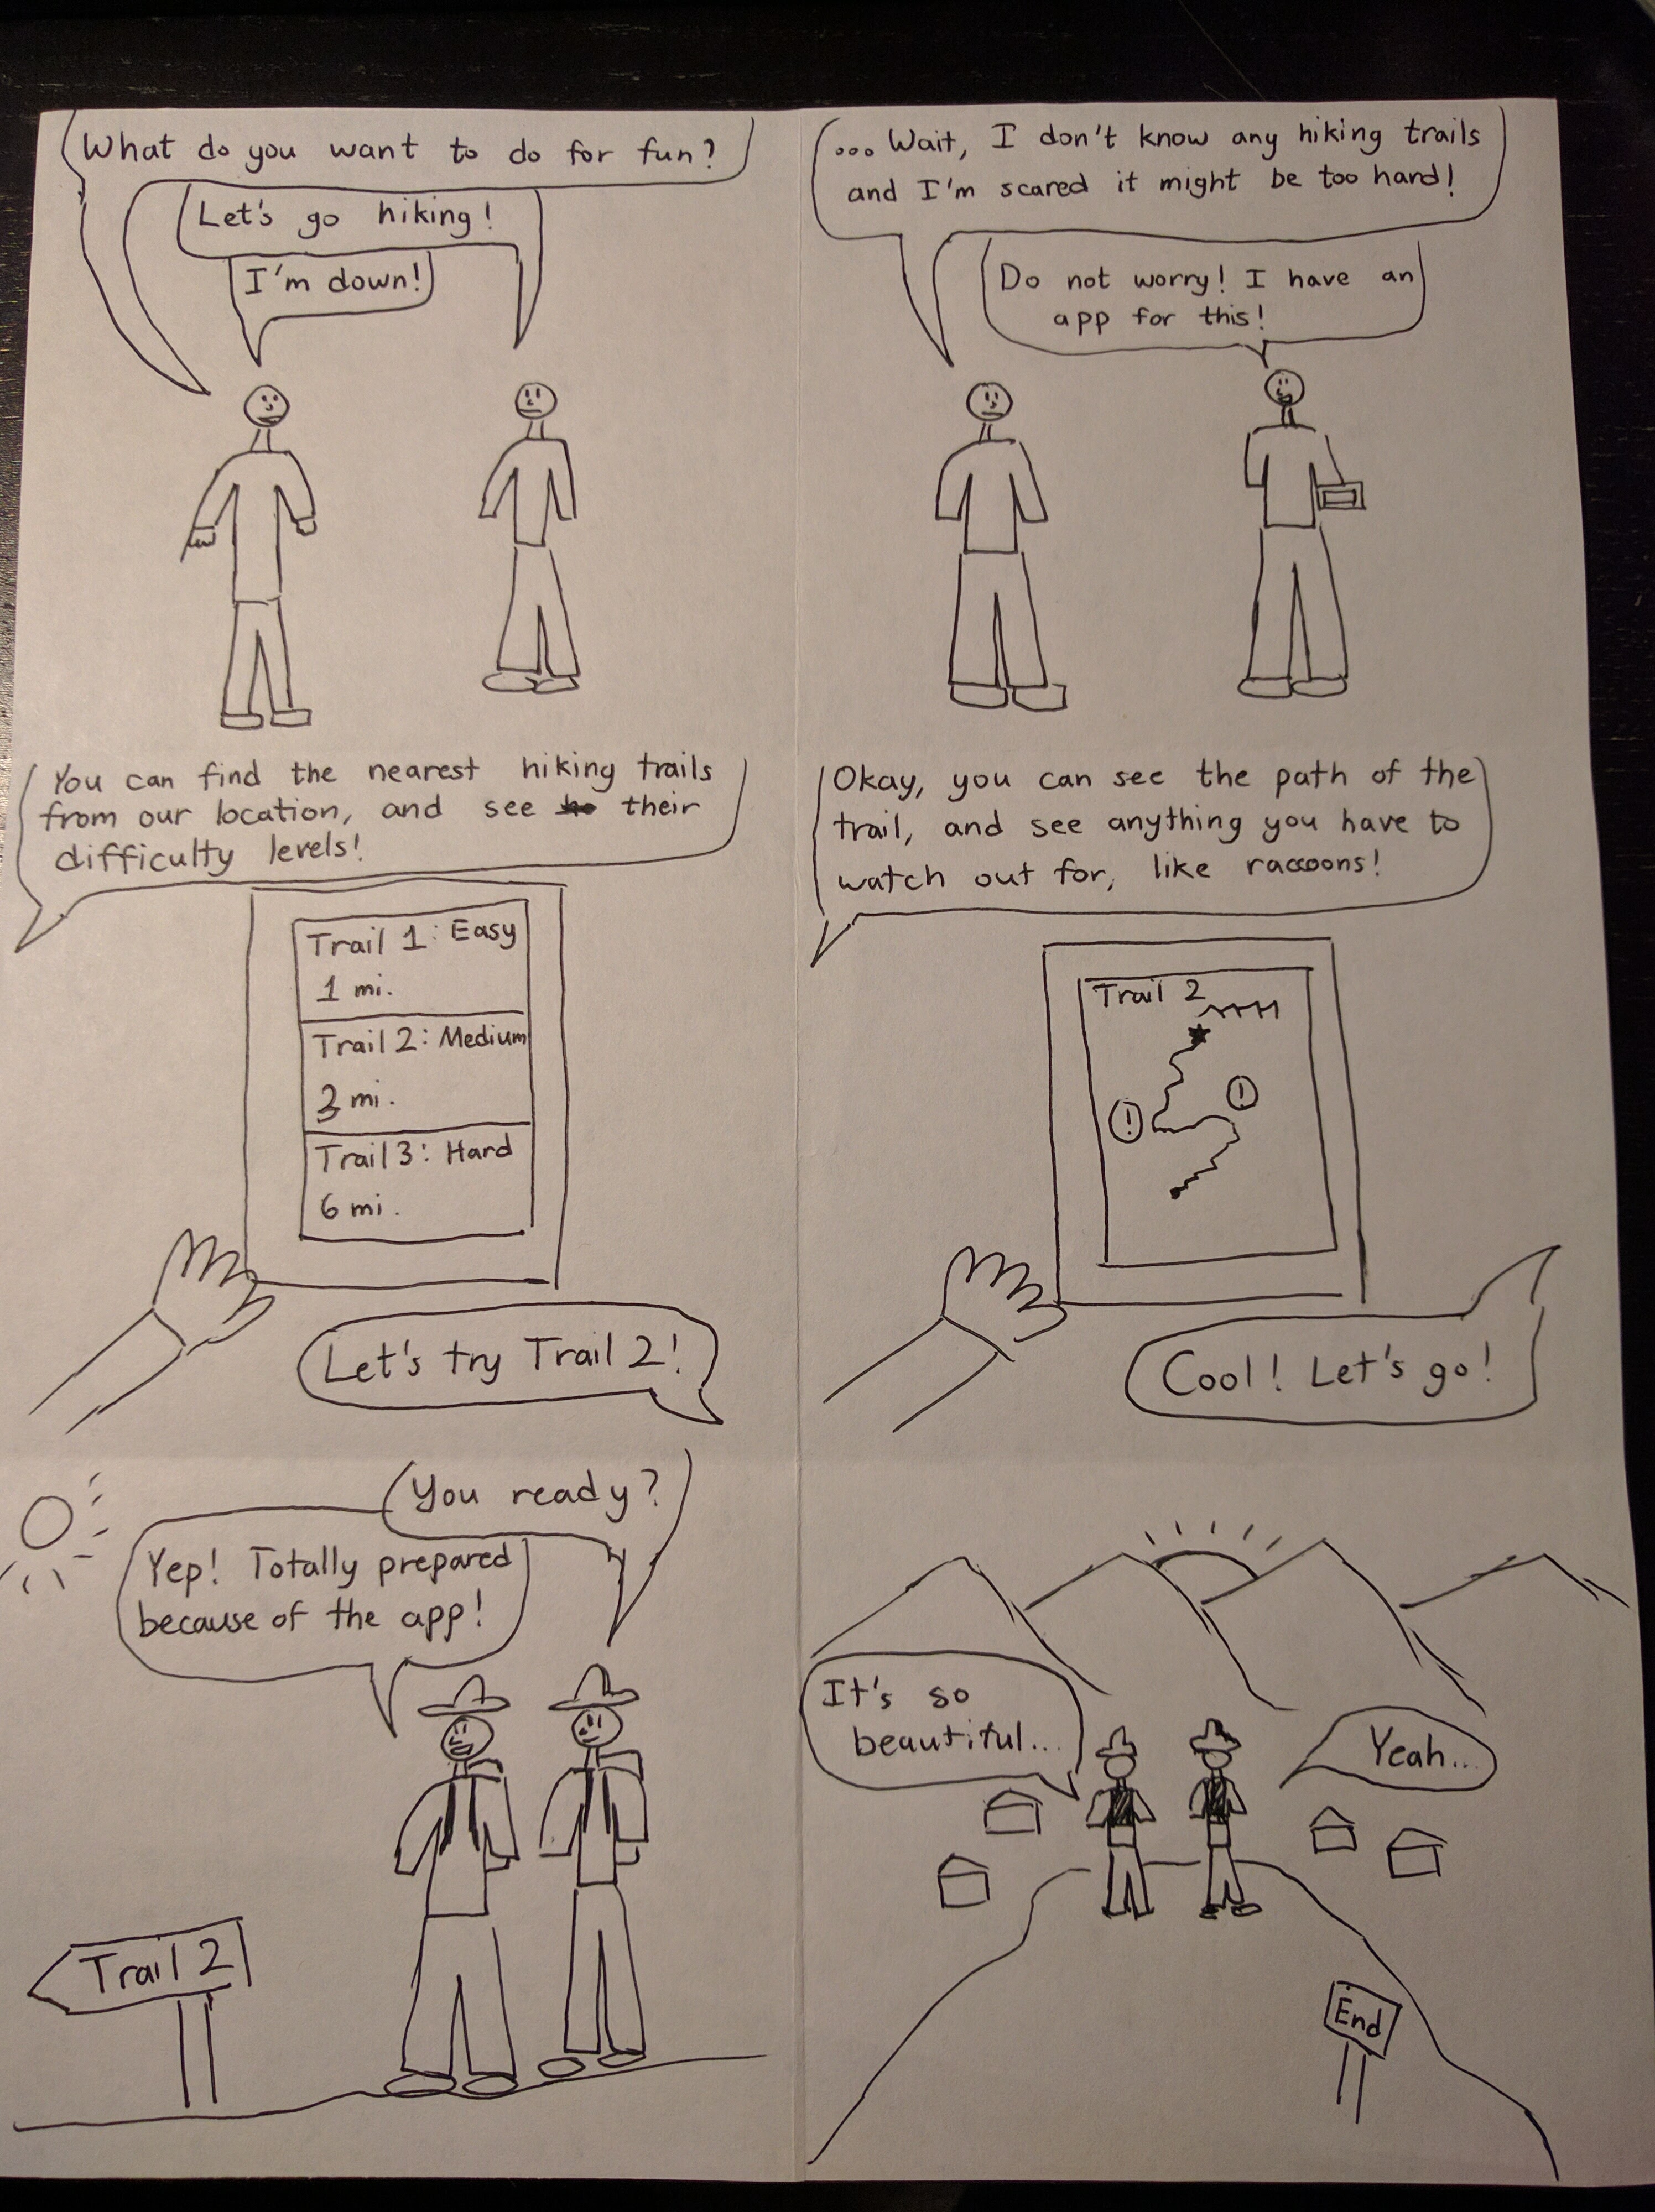 What do you want to do for fun?
Let's go hiking!
I'm down!
...Wait, I don't know any hiking trails
and I'm scared it might be too hard!
Do not worry! I have an
app for this!
You can find the nearest hiking trails
from our location, and see their
difficulty levels!
Trail 1: Easy
1 mi.
Trail 2: Medium
3 mi.
Trail 3: Hard
6 mi.
Let's try Trail 2!
Okay, you can see the path of the
trail, and see anything you have to
watch out for, like raccoons!
Trail 2
!
!
Cool! Let's go!
You ready?
Yep! Totally prepared
because of the app!
Trail 2
It's so
beautiful...
Yeah...
End